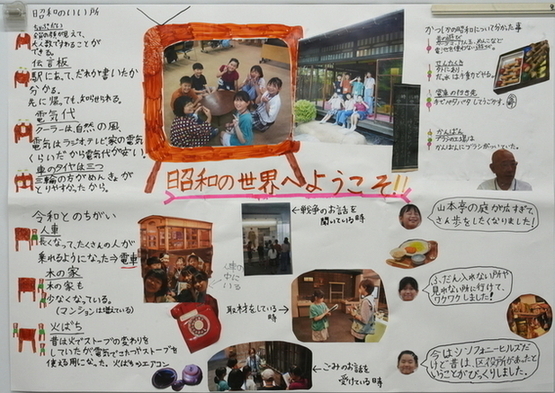 昭和のいい所
ちゃぶだい
大人数ですわることが
できる。
伝言板
駅において、だれか書いたか
分かる。
先に帰っても、知らせられる。
電気代
クーラーは、自然の風、
電気はラジオ、テレビ、家の電気
くらいだから電気代が安い。
車のタイヤは三つ
三輪の方がめんきょが
とりやすかったから。
昭和の世界へようこそ!!
かつしかの昭和について分かった事
令和とのちがい
人車
長くなって、たくさんの人が
乗れるようになった→電車
木の家
木の家も
少なくなっている。
(マンションは増えている)
火ばち
昔は火でストーブの変わりを
していたが電気できたかストーブを
使える用になった。火ばち→エアコン
←戦争のお話を
聞いている時
取材をしている
時
←ごみのお話を
受けている時
山本亭の庭が広すぎて、
さん歩をしたくなりました!
ふだん入れない所や
見れない所に行けて、
ワクワクしました!
今はシンフォニーヒルズだ
けど昔は、区役所があったと
いうことがびっくりしました。